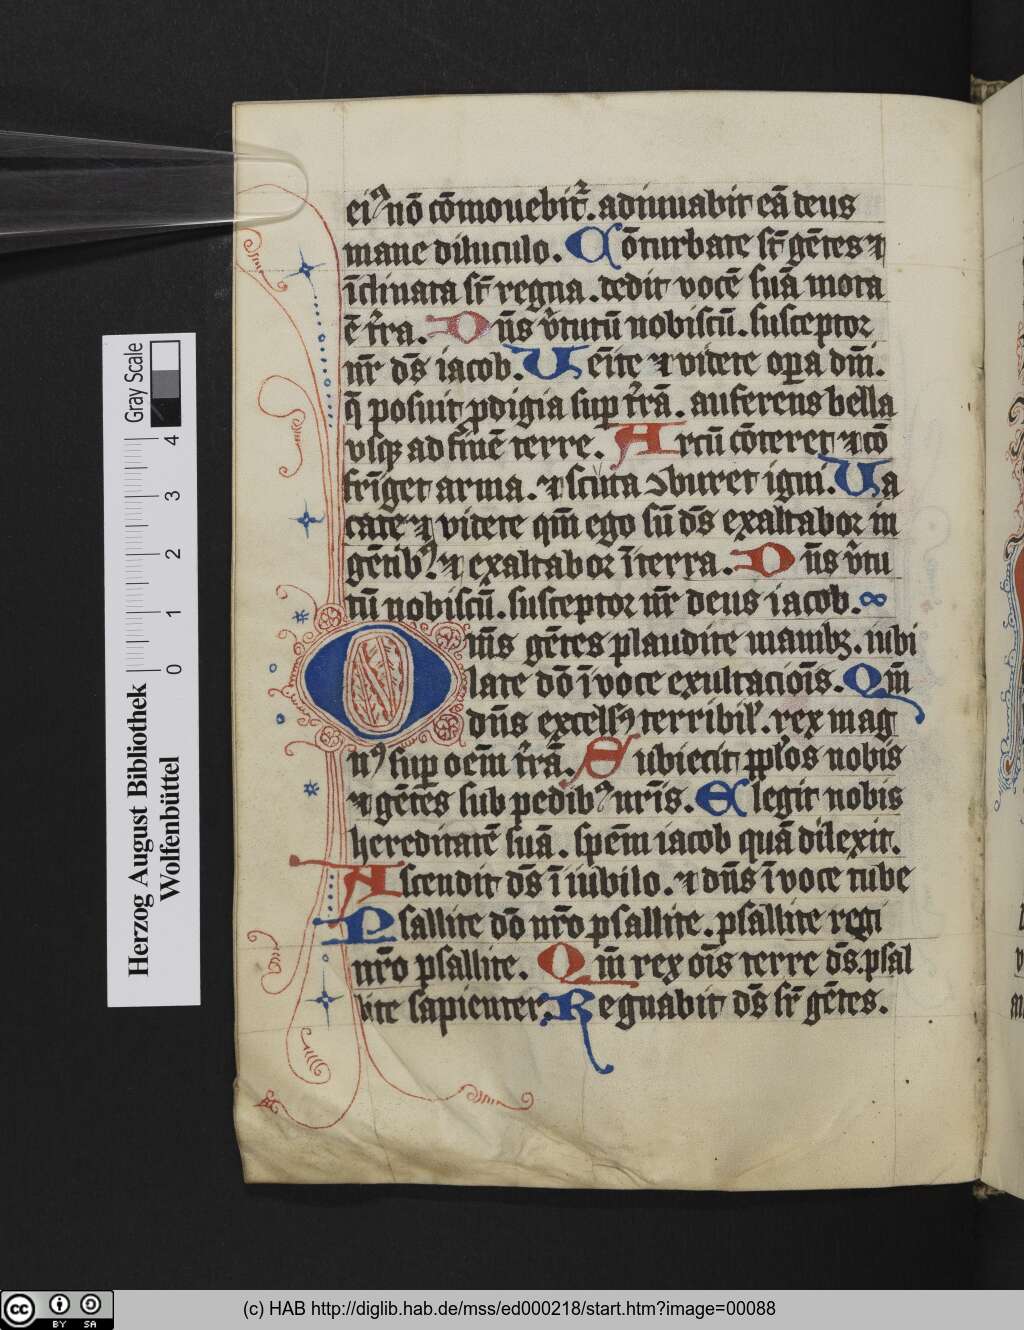 eiꝰ nō cōmouebit᷑. adiuuabit eā deus
mane diluculo. Cōturbate st̄ gētes ⁊
īclinata st̄ regna. dedit vocē suā mota
ē t̄ra. Dn̄s v̄tutū nobiscū. susceptor
nr̄ dS̄ iacob. Uēite ⁊ videte oꝑa dn̄i.
q̄ posuit ꝓdigia suꝑ t̄rā. auferens bella
vsqꝫ ad finē terre. Arcū cōteret ⁊ cō
frīget arma. ⁊ scuta ↄburet igni. Ua
cate ⁊ videte qm̄ ego sū ds̄ exaltabor in
gētibꝰ. ⁊ exaltabor ī terra. Dn̄s v̄tu
tū nobiscū. susceptor nr̄ deus iacob.
Om̄s gētes plaudite manibꝫ. iubi
late dō ī voce exultaciōis. Qm̄
dn̄s excelsꝰ terribil̕. rex mag
nꝰ suꝑ oēm t̄rā. Subiecit pp̄los nobis
⁊ gētēs sub pedibꝰ nr̄is. Elegit nobis
hereditatē suā. spēm iacob quā dilexit.
Ascendit ds̄ ī iubilo. ⁊ dn̄s ī voce tube
Psallite dō nr̄o psallite. psallite regi
nr̄o psallite. Qm̄ rex oīs terre ds̄. psal
lite sapienter. Regnabit ds̄ sr̄ gētes.
Herzog August Bibliothek
Wolfenbüttel
Gray Scale
0 1 2 3 4
cc BY SA
(c) HAB http://diglib.hab.de/mss/ed000218/start.htm?image=00088